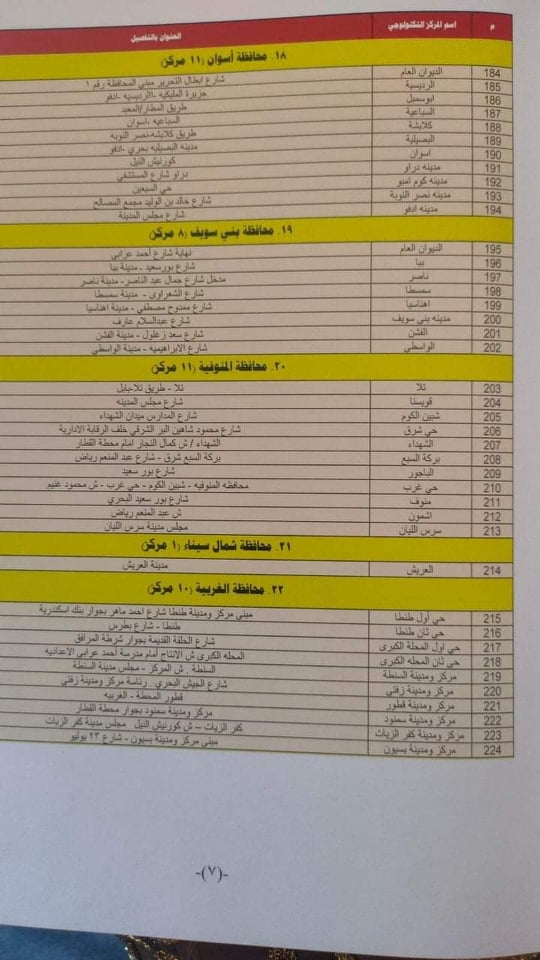 م اسم المركز التكنولوجي العنوان بالتفصيل
١٨. محافظة أسوان (١١ مركز)
184 الديوان العام شارع ابطال التحرير مبني المحافظة رقم ١
185 الرديسية جزيرة المليكيه -الرديسيه -ادفو
186 ابوسمبل طريق المطار/المعبد
187 السباعية السباعيه -اسوان
188 كلابشة طريق كلابشه-نصر النوبه
189 البصيلية مدينه البصيليه بحري -ادفو
190 اسوان كورنيش النيل
191 مدينه دراو دراو شارع المستشفي
192 مدينه كوم امبو حي السبعين
193 مدينه نصر النوبة شارع خالد بن الوليد مجمع المصالح
194 مدينه ادفو شارع مجلس المدينة
١٩. محافظة بني سويف (٨ مركز)
195 الديوان العام نهاية شارع أحمد عرابي
196 ببا شارع بورسعيد - مدينة ببا
197 ناصر مدخل شارع جمال عبد الناصر- مدينة ناصر
198 سمسطا شارع الشعراوى - مدينة سمسطا
199 اهناسيا شارع ممدوح مصطفي - مدينة اهناسيا
200 مدينه بني سويف شارع عبدالسلام عارف
201 الفشن شارع سعد زغلول - مدينة الفشن
202 الواسطي شارع الابراهيميه - مدينة الواسطي
٢٠. محافظة المنوفية (١١ مركز)
203 تلا تلا - طريق تلا-بابل
204 قويسنا شارع مجلس المدينه
205 شبين الكوم شارع المدارس ميدان الشهداء
206 حي شرق شارع محمود شاهين البر الشرقي خلف الرقابة الادارية
207 الشهداء الشهداء / ش كمال النجار امام محطة القطار
208 بركة السبع بركة السبع شرق - شارع عبد المنعم رياض
209 الباجور شارع بور سعيد
210 حي غرب محافظه المنوفيه - شبين الكوم - حي غرب - ش محمود غنيم
211 منوف شارع بور سعيد البحري
212 اشمون ش عبد المنعم رياض
213 سرس الليان مجلس مدينة سرس الليان
٢١. محافظة شمال سيناء (١ مركز)
214 العريش مدينة العريش
٢٢. محافظة الغربية (١٠ مركز)
215 حي أول طنطا مبني مركز ومدينة طنطا شارع احمد ماهر بجوار بنك اسكندرية
216 حي ثان طنطا طنطا - شارع بطرس
217 حي اول المحلة الكبرى شارع الحلقة القديمة بجوار شرطة المرافق
218 حي ثان المحله الكبرى المحله الكبرى ش الانتاج أمام مدرسة أحمد عرابي الاعداديه
219 مركز ومدينة السنطة السنطة . ش المركز - مجلس مدينة السنطة
220 مركز ومدينة زفتي شارع الجيش البحري . رئاسة مركز ومدينة زفتي
221 مركز ومدينة قطور قطور المحطة - الغربيه
222 مركز ومدينة سمنود مركز ومدينة سمنود بجوار محطة القطار
223 مركز ومدينة كفر الزيات كفر الزيات – ش كورنيش النيل مجلس مدينة كفر الزيات
224 مركز ومدينة بسيون مبني مركز ومدينة بسيون - شارع ٢٣ يوليو
-(٧)-